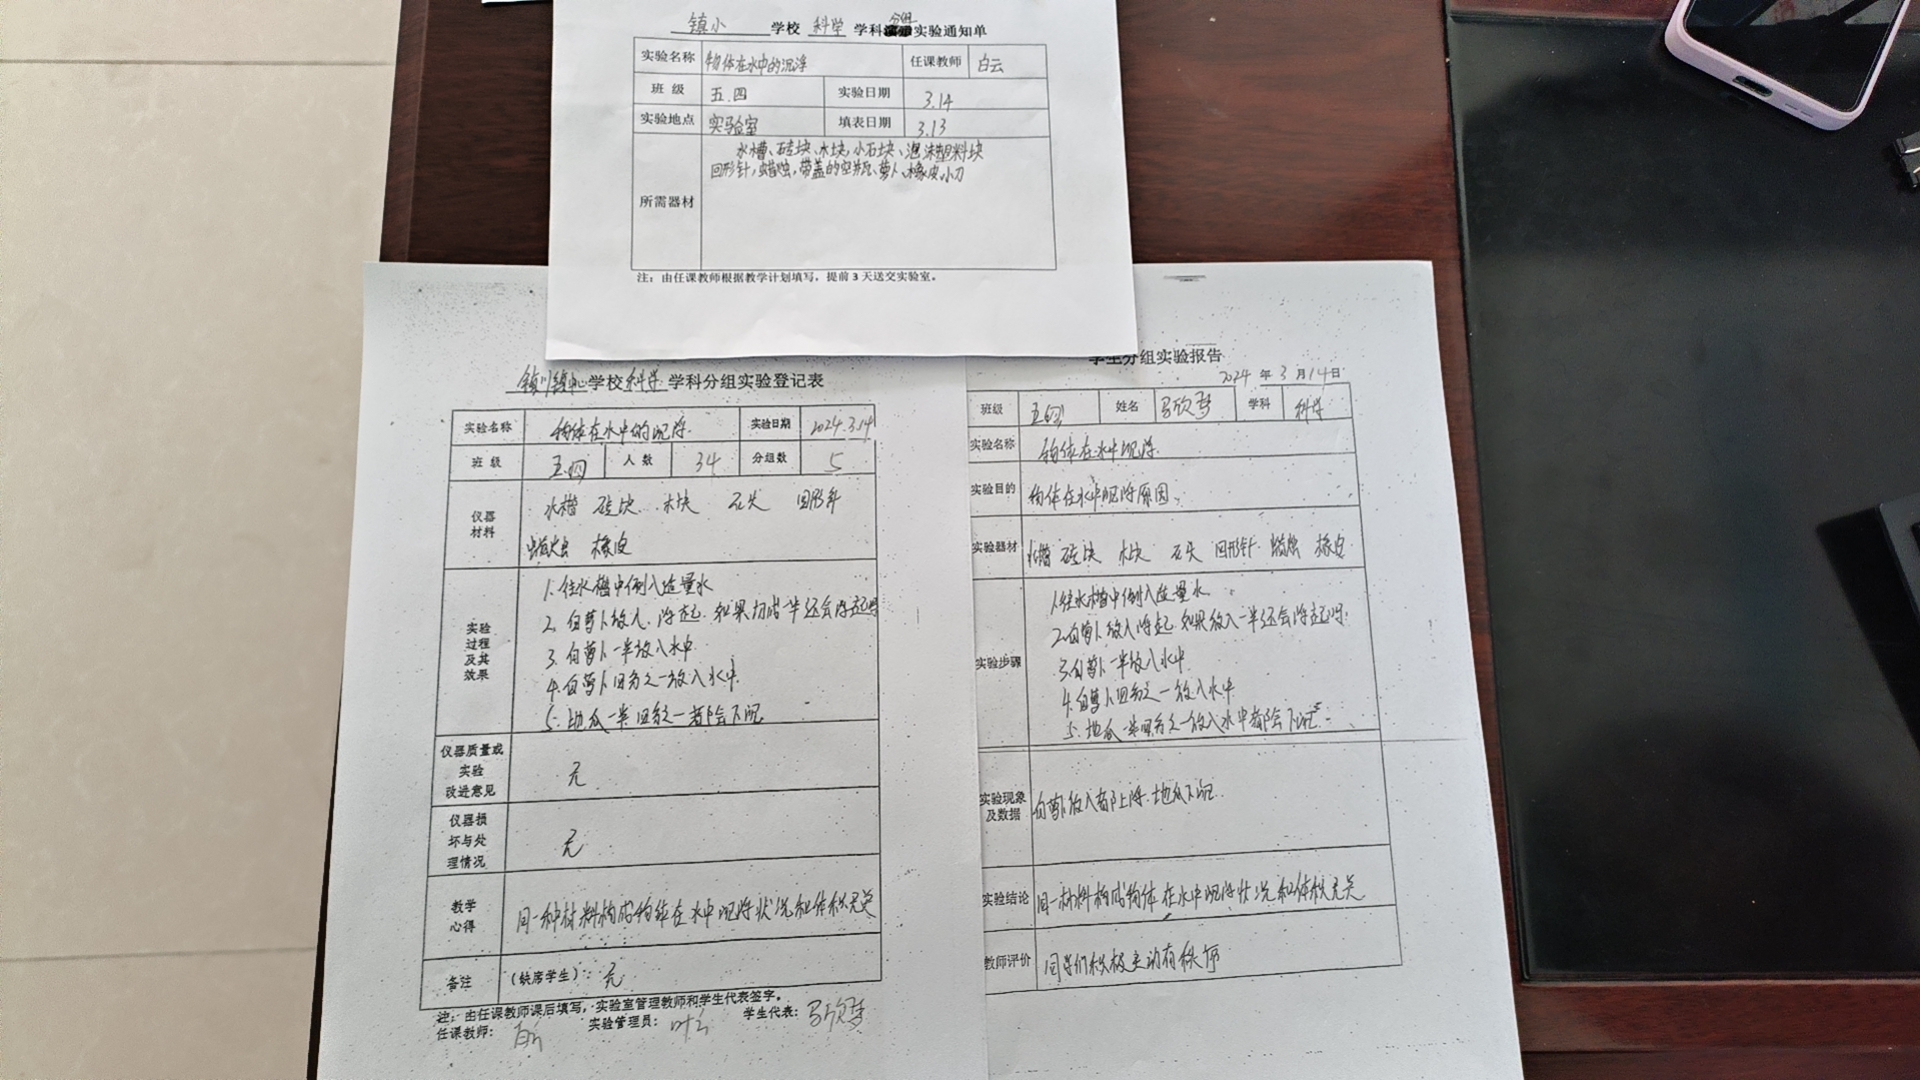 镇小 学校 科学 学科分组实验通知单
实验名称 物体在水中的沉浮 任课教师 白云
班 级 五.四 实验日期 3.14
实验地点 实验室 填表日期 3.13
所需器材
水槽、砖块、木块,小石块、泡沫塑料块
回形针,蜡烛,带盖的空瓶、萝卜、橡皮,小刀
注:由任课教师根据教学计划填写,提前 3 天送交实验室。
学校 科学 学科分组实验登记表
实验名称 物体在水中的沉浮. 实验日期 2024.3.14
班 级 五.四 人 数 34 分组数 5
仪器材料
水槽 砖块 木块 石头 回形针
蜡烛 橡皮
实验过程及其效果
1. 往水槽中倒入适量水
2. 白萝卜放入,浮起.如果切成一半还会浮起吗
3. 白萝卜一半放入水中
4. 白萝卜四分之一放入水中.
5. 地瓜一半四分之一都会下沉
仪器质量或实验改进意见 无
仪器损坏与处理情况 无
教学心得 同一种材料构成物体在水中沉浮状况和体积无关
备注 (缺席学生): 无
注:由任课教师课后填写,实验室管理教师和学生代表签字。
任课教师: 实验管理员: 学生代表:
学生分组实验报告
2024 年 3 月 14 日
班级 五四 姓名 学科 科学
实验名称 物体在水中沉浮.
实验目的 物体在水中沉浮原因.
实验器材 水槽 砖块 木块 石头 回形针 蜡烛 橡皮
实验步骤
1.往水槽中倒入适量水.
2.白萝卜放入浮起.如果放入一半还会浮起吗.
3.白萝卜一半放入水中
4.白萝卜四分之一放入水中
5.地瓜一半四分之一放入水中都会下沉.
实验现象及数据 白萝卜放入都上浮.地瓜下沉.
实验结论 同一材料构成物体在水中沉浮状况和体积无关
教师评价 同学们积极主动有秩序